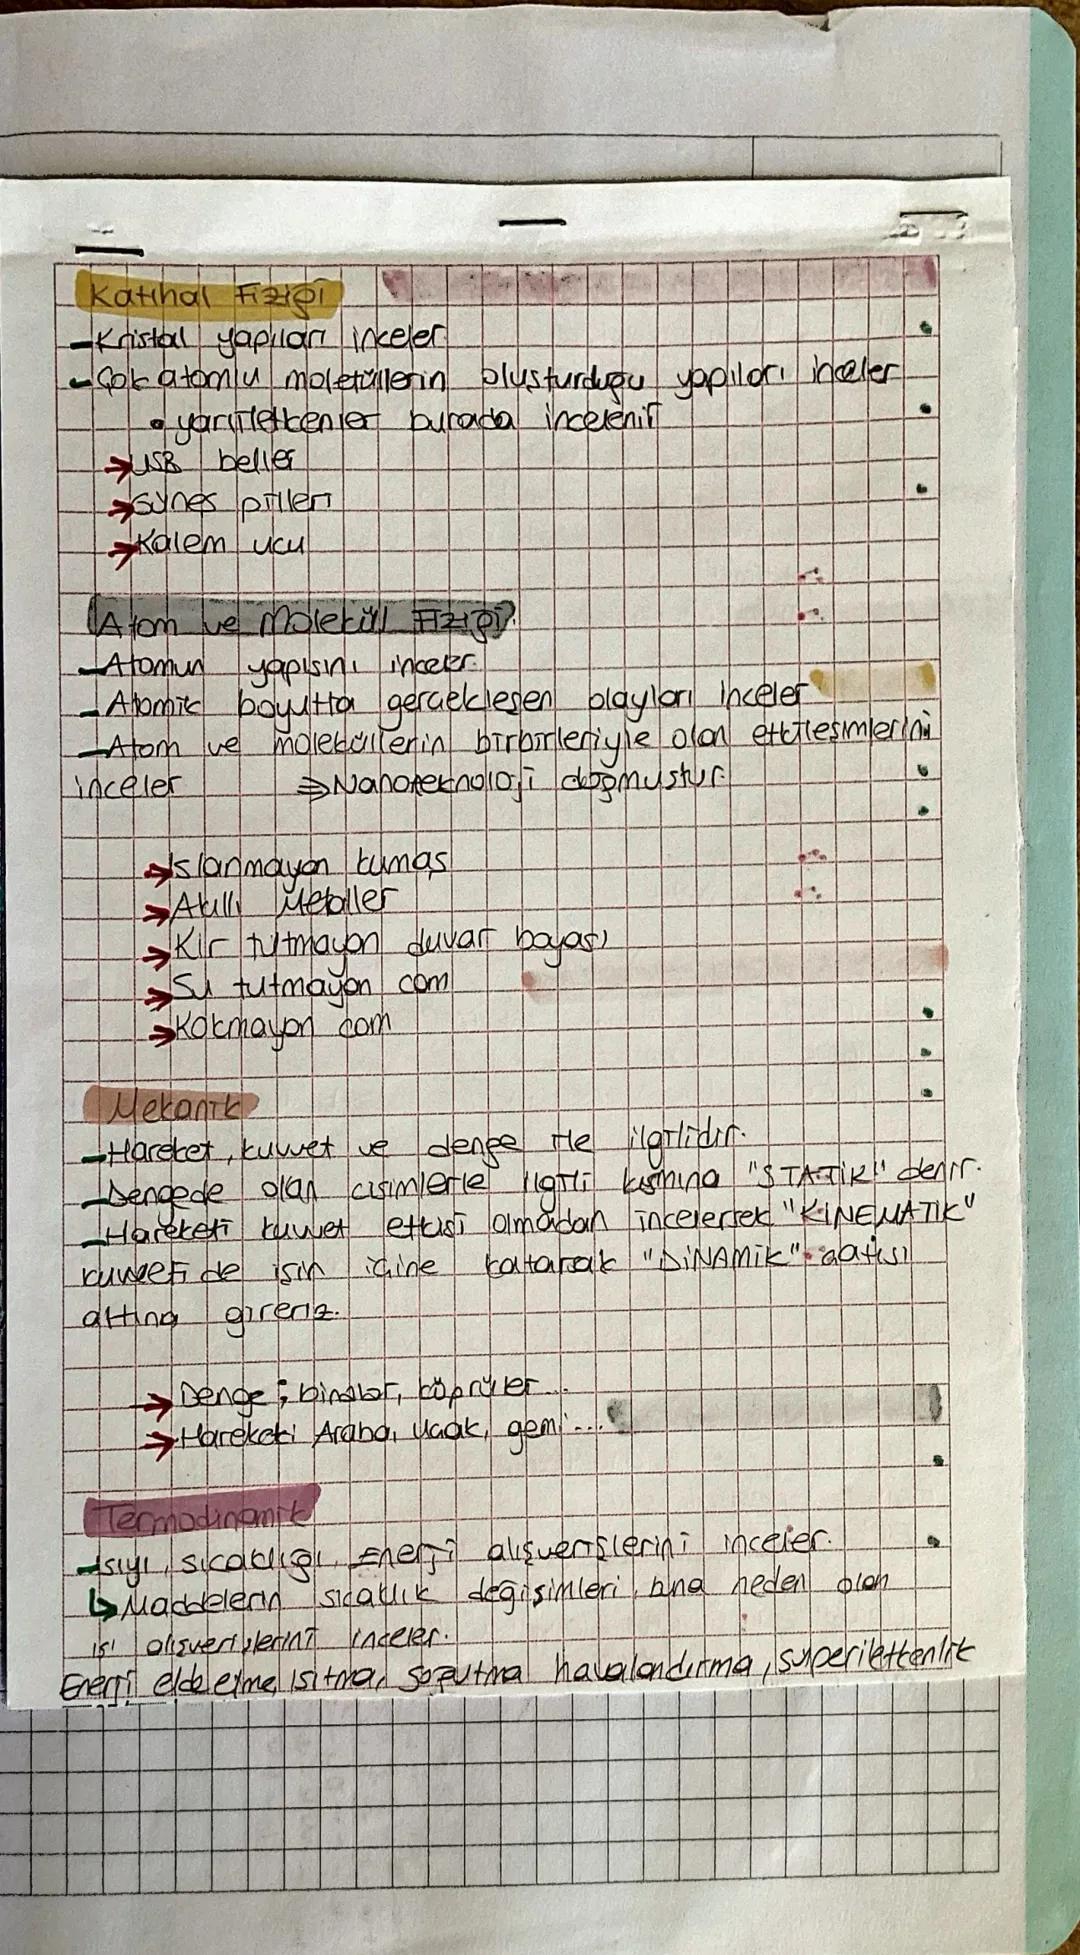 Katıhal Fiziği
-Kristal yapıları inceler
-Çok atomlu moleküllerin oluşturduğu yapıları inceler
• yarıiletkenler burada incelenir
→USB beller
→Güneş pilleri
→Kalem ucu
Atom ve Molekül Fiziği
-Atomun yapısını inceler.
-Atomik boyutta gerçekleşen olayları inceler
-Atom ve moleküllerin birbirleriyle olan etkileşimlerini
inceler ⇒Nanoteknoloji doğmuştur.
→Islanmayan kumaş
→Akıllı Metaller
→Kir tutmayan duvar boyası
→Su tutmayan cam
→Kokmayan cam
Mekanik
-Hareket, kuvvet ve denge ile ilgilidir.
-Dengede olan cisimlerle ilgili kısmına "STATİK" denir.
-Hareketi kuvvet etkisi olmadan incelersek "KİNEMATİK"
kuvveti de işin içine katarsak "DİNAMİK" çatısı
altına gireriz.
→ Denge ; binalar, köprüler...
→ Hareket; Araba, Uçak, gemi...
Termodinamik
-Isıyı, sıcaklığı, Enerji alışverişlerini inceler.
↳Maddelerin sıcaklık değişimleri, buna neden olan
ısı alışverişlerini inceler.
Enerji elde etme, ısıtma, soğutma havalandırma, süperiletkenlik